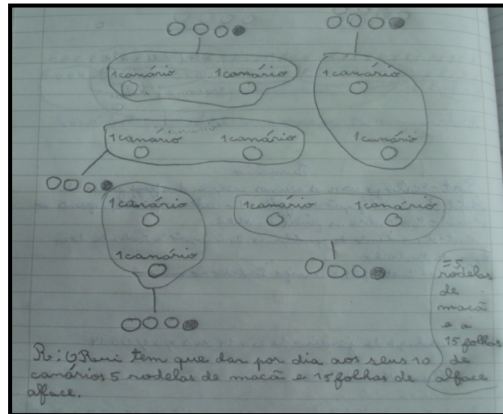 1 canário 1 canário
1 canário
1 canário 1 canário
1 canário
1 canário
1 canário 1 canário
1 canário
= 5
rodelas
de
maçã
e a
15 folhas
de
alface
R: O Rui tem que dar por dia aos seus 10
canários 5 rodelas de maçã e 15 folhas de
alface.